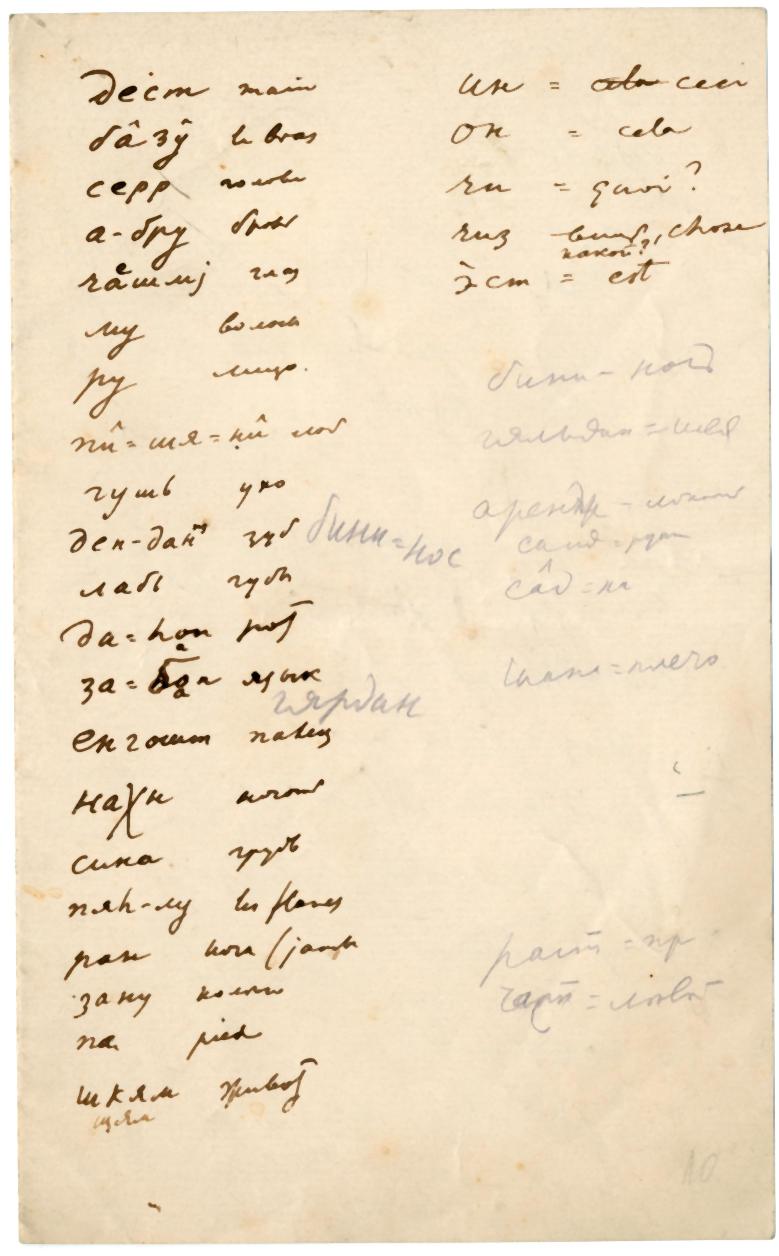 дест main
бâзŷ le bras
серр голова
а-бру бровь
чашмј глаз
му волосы
ру лицо.
пи̂=шя=ни̂ лоб
гушь ухо
ден-дан зуб
лабь губы
да=hан рот
за=бан язык
енгошт палец
нахн ноготь
сина грудь
пяh-лу les flancs
ран нога (jambe
зану колено
па pied
шкям живот
щям
ин = cela ceci
он = cela
чи = quoi?
чиз chose
какой?
э̂ст = est
бини = нос
гярдан
бини - нос
гяльдан = шея
арендж - локоть
сâд =
шана = плечо
раст = пр
чап = левый
10